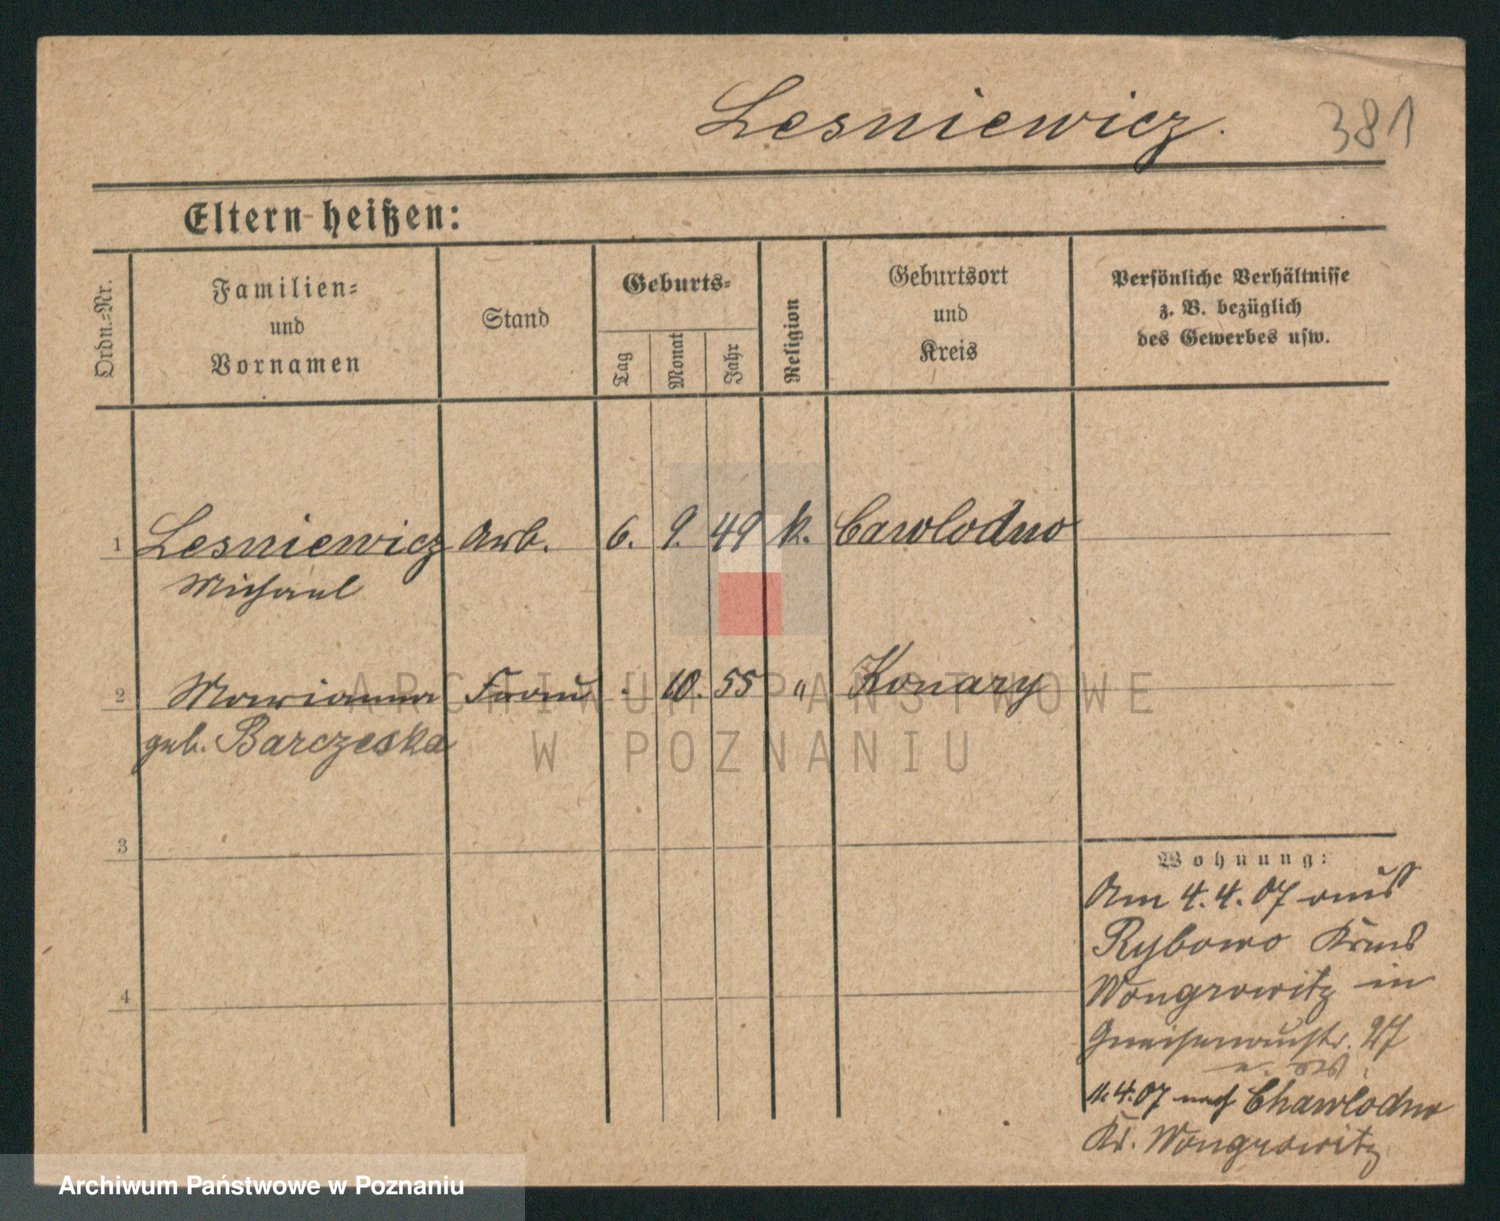 Lesniewicz.
381
Eltern heißen:
Ordn.-Nr.
Familien-
und
Vornamen
Stand
Geburts-
Tag
Monat
Jahr
Religion
Geburtsort
und
Kreis
Persönliche Verhältnisse
z. B. bezüglich
des Gewerbes usw.
1 Lesniewicz Arb. 6. 9. 49 k. Cawlodno
Michael
2 Marianna Frau . 10. 55 " Konary
geb. Barczeska
3
4
Wohnung:
Am 4.4.07 aus
Rybowo Kreis
Wongrowitz in
Gneisenaustr. 27
4.07 nach Chawlodno
Kr. Wongrowitz
ARCHIWUM PAŃSTWOWE
W POZNANIU
Archiwum Państwowe w Poznaniu